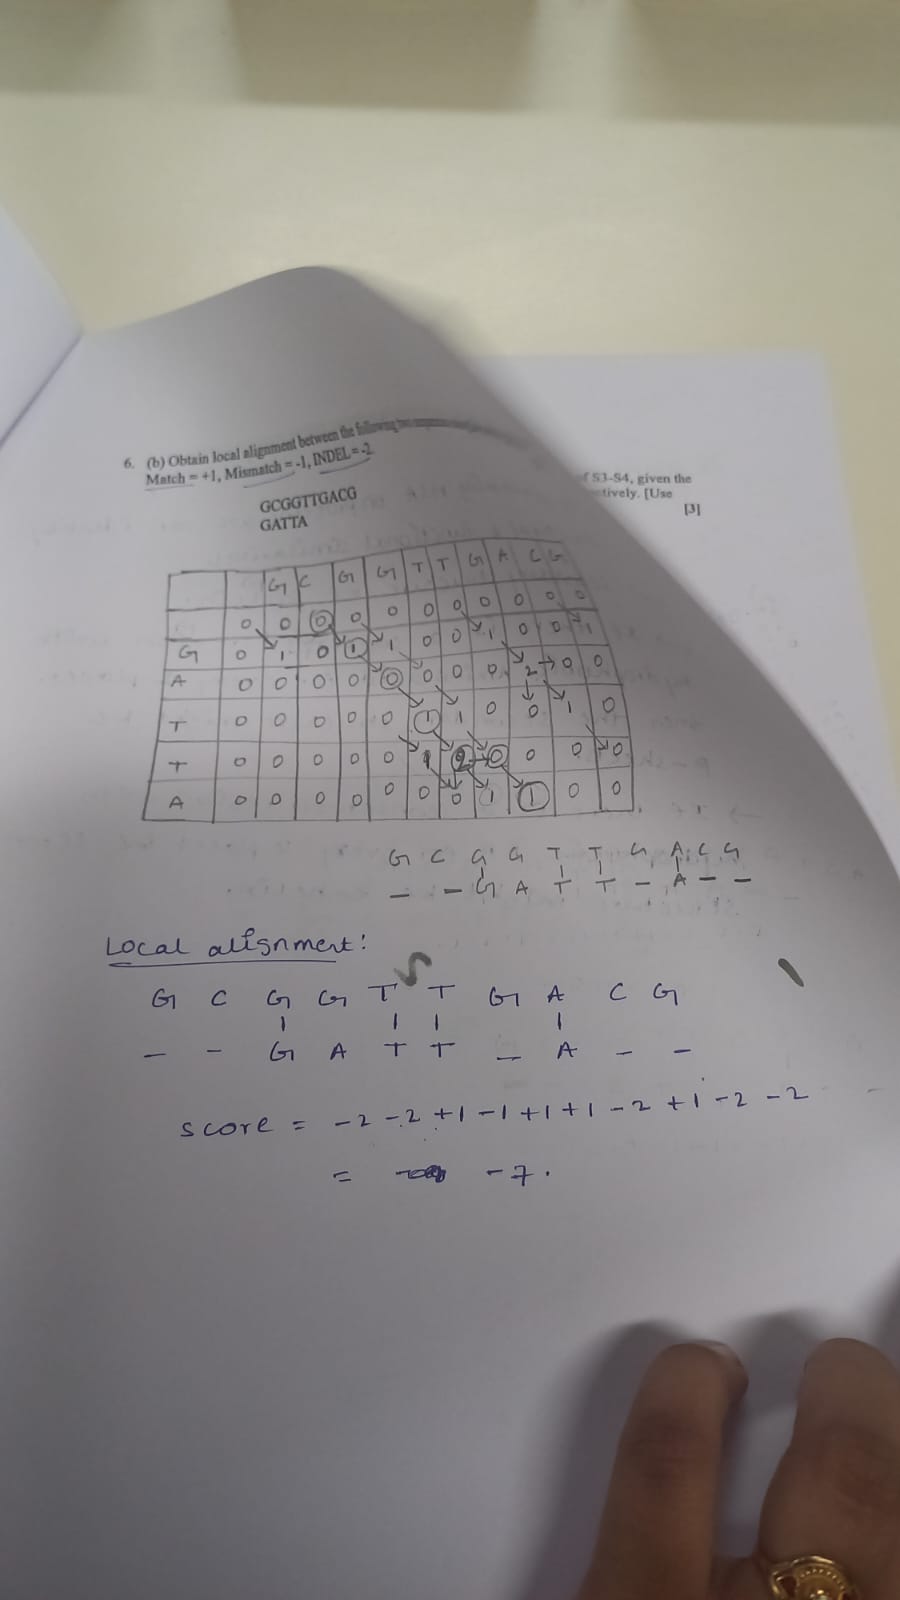 6. (b) Obtain local alignment between the following two
Match = +1, Mismatch = -1, INDEL = -2
of S3-S4, given the
tively. [Use
[3]
GCGGTTGACG
GATTA
G C G G T T G A C G
0 0 0 0 0 0 0 0 0 0 0
G 0 1 0 1 1 0 0 1 0 0 1
A 0 0 0 0 0 0 0 0 2 → 0 0
T 0 0 0 0 0 1 1 0 0 1 0
T 0 0 0 0 0 1 2 → 0 0 0 0
A 0 0 0 0 0 0 0 1 1 0 0
G C G G T T G A C G
— — G A T T — A — —
Local alignment:
G C G G T T G A C G
— — G A T T — A — —
score = -2 -2 +1 -1 +1 +1 -2 +1 -2 -2
= -7.